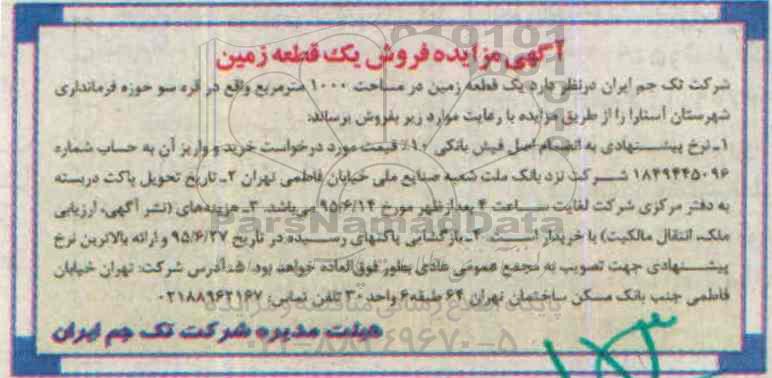 آگهی مزایده فروش یک قطعه زمین
شرکت تک جم ایران درنظر دارد یک قطعه زمین در مساحت ۱۰۰۰ مترمربع واقع در قره سو حوزه فرمانداری
شهرستان آستارا را از طریق مزایده با رعایت موارد زیر بفروش برساند:
۱ـ نرخ پیشنهادی به انضمام اصل فیش بانکی ۱۰٪ قیمت مورد درخواست خرید و واریز آن به حساب شماره
۱۸۴۹۴۴۵۰۹۶ شرکت نزد بانک ملت شعبه صنایع ملی خیابان فاطمی تهران ۲ـ تاریخ تحویل پاکت دربسته
به دفتر مرکزی شرکت لغایت ساعت ۴ بعدازظهر مورخ ۹۵/۶/۱۴ می‌باشد. ۳ـ هزینه‌های (نشر آگهی، ارزیابی
ملک، انتقال مالکیت) با خریدار است. ۴ـ بازگشایی پاکتهای رسیده در تاریخ ۹۵/۶/۲۷ و ارائه بالاترین نرخ
پیشنهادی جهت تصویب به مجمع عمومی عادی بطور فوق العاده خواهد بود/ ضد آدرس شرکت: تهران خیابان
فاطمی جنب بانک مسکن ساختمان تهران ۶۴ طبقه ۶ واحد ۳۰ تلفن تماس: ۰۲۱۸۸۹۶۲۱۶۷
هیئت مدیره شرکت تک جم ایران
ParsNamadData
پایگاه اطلاع رسانی مناقصه و مزایده
۰۲۱-۸۸۳۴۹۶۷۰-۵